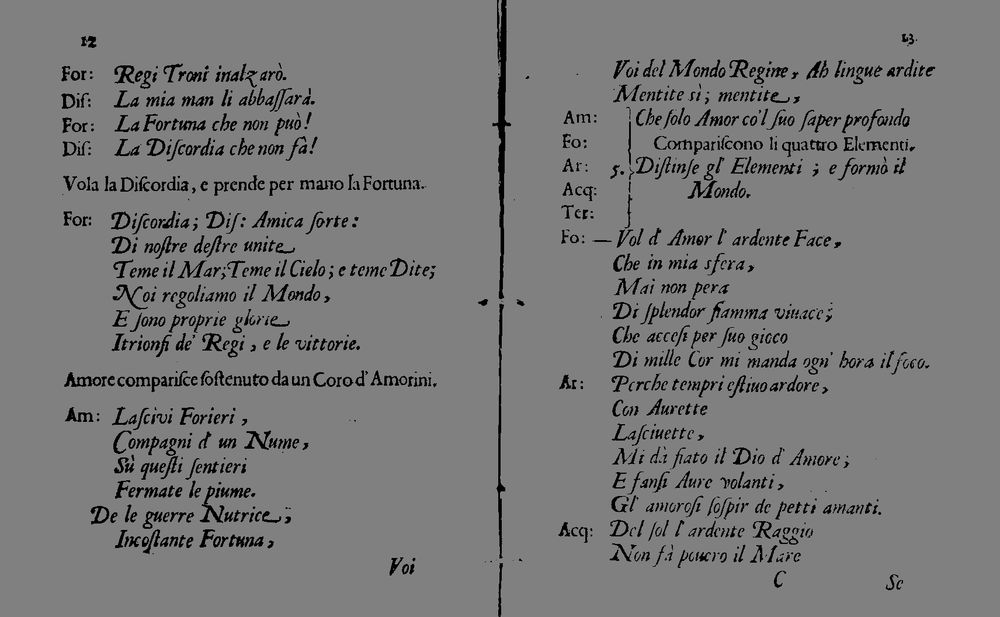 12
For: Regi Troni inalzarò.
Dis: La mia man li abbaſſarà.
For: La Fortuna che non può!
Dis: La Diſcordia che non fà!
Vola la Diſcordia, e prende per mano la Fortuna.
For: Diſcordia; Diſ: Amica ſorte:
Di noſtre deſtre unite
Teme il Mar; Teme il Cielo; e teme Dite;
Noi regoliamo il Mondo,
E ſono proprie glorie
I trionfi de' Regi, e le vittorie.
Amore compariſce ſoſtenuto da un Coro d'Amorini.
Am: Laſcivi Forieri,
Compagni d'un Nume,
Sù queſti ſentieri
Fermate le piume.
De le guerre Nutrice,;
Incoſtante Fortuna,
Voi
13.
Voi del Mondo Regine, Ah lingue ardite
Mentite sì; mentite,
Am: Che ſolo Amor co'l ſuo ſaper profondo
Fo: Compariſcono li quattro Elementi.
Ar: 5. Diſtinſe gl'Elementi; e formò il
Acq: Mondo.
Ter:
Fo: — Vol d'Amor l'ardente Face,
Che in mia sfera,
Mai non pera
Di ſplendor fiamma vivace;
Che acceſi per ſuo gioco
Di mille Cor mi manda ogn'hora il foco.
Ar: Perche tempri eſtiuo ardore,
Con Aurette
Laſciuette,
Mi dà fiato il Dio d'Amore;
E fanſi Aure volanti,
Gl'amoroſi ſoſpir de petti amanti.
Acq: Del ſol l'ardente Raggio
Non fà pouero il Mare
C
Se